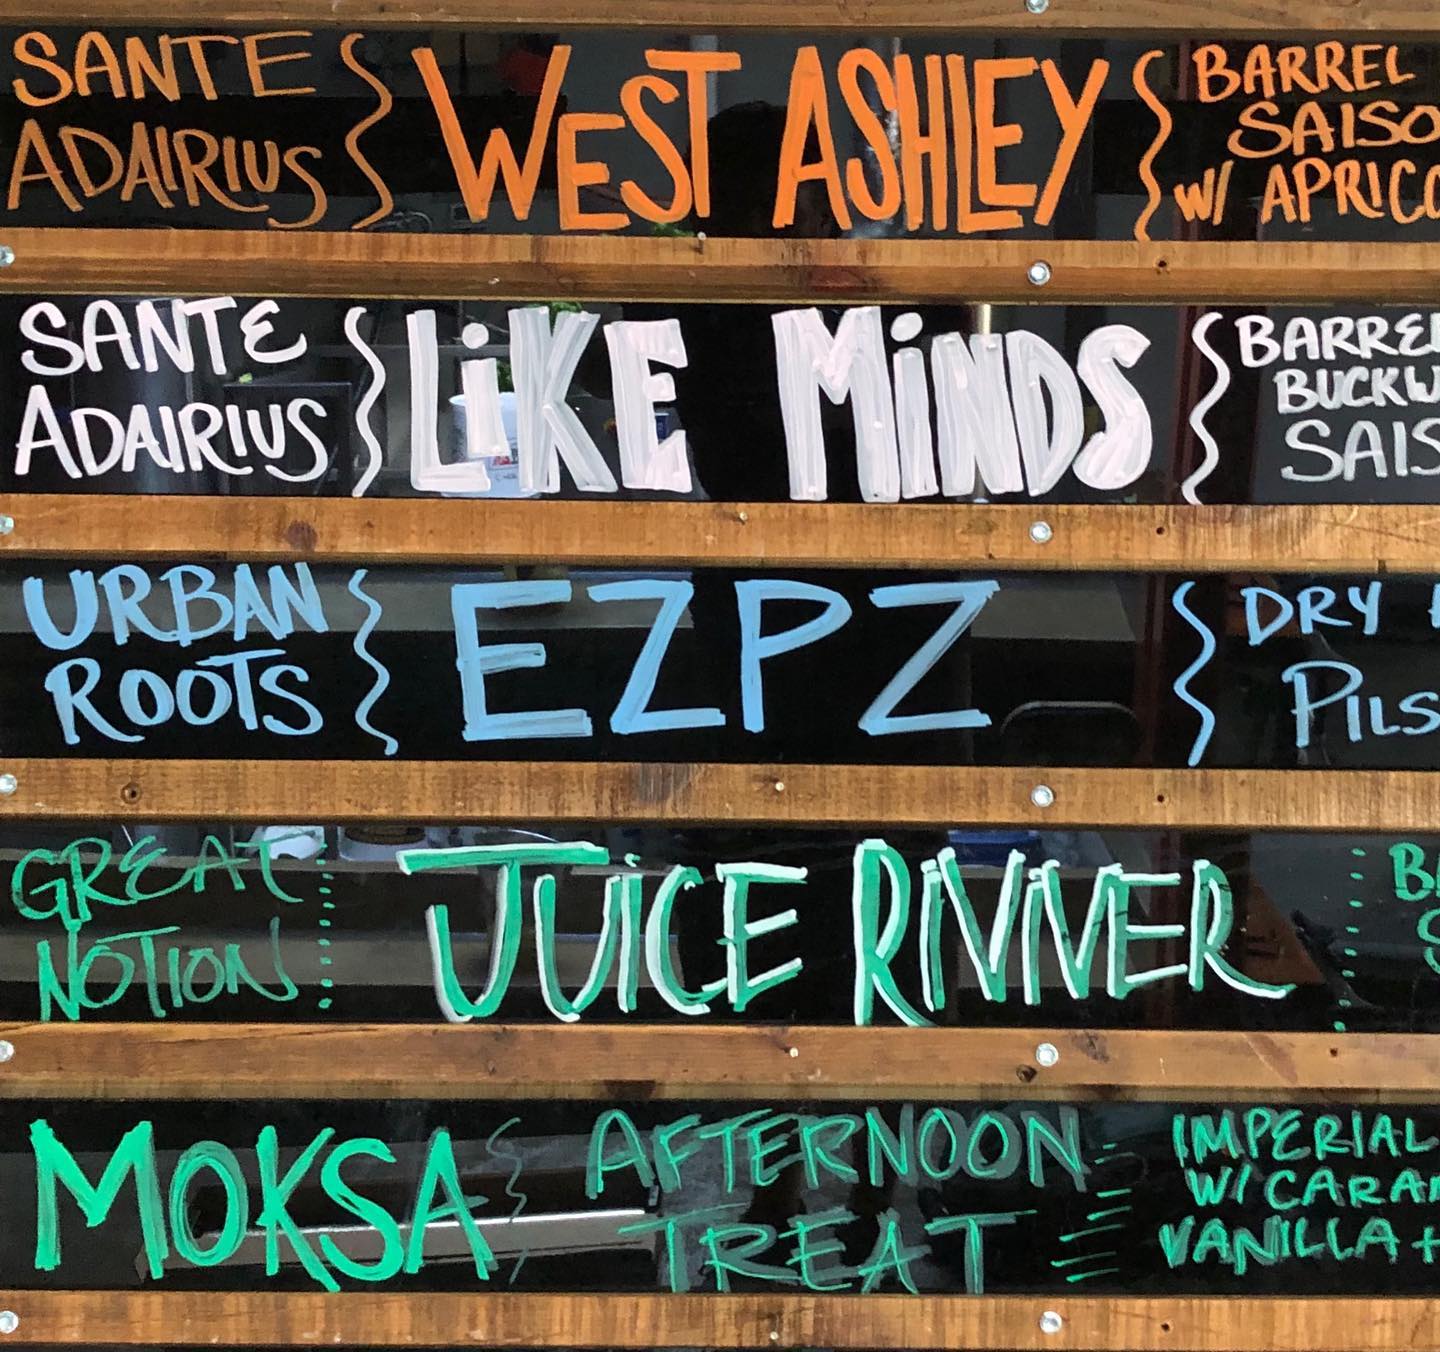 SANTE
ADAIRIUS
WEST ASHLEY
BARREL
SAISO
W/ APRICO
SANTE
ADAIRIUS
LiKE MiNDS
BARREL
BUCKW
SAIS
URBAN
ROOTS
EZPZ
DRY
PILS
GREAT
NOTION
JUiCE RIVIVER
B
MOKSA
AFTERNOON
TREAT
IMPERIAL
W/ CARAM
VANILLA +